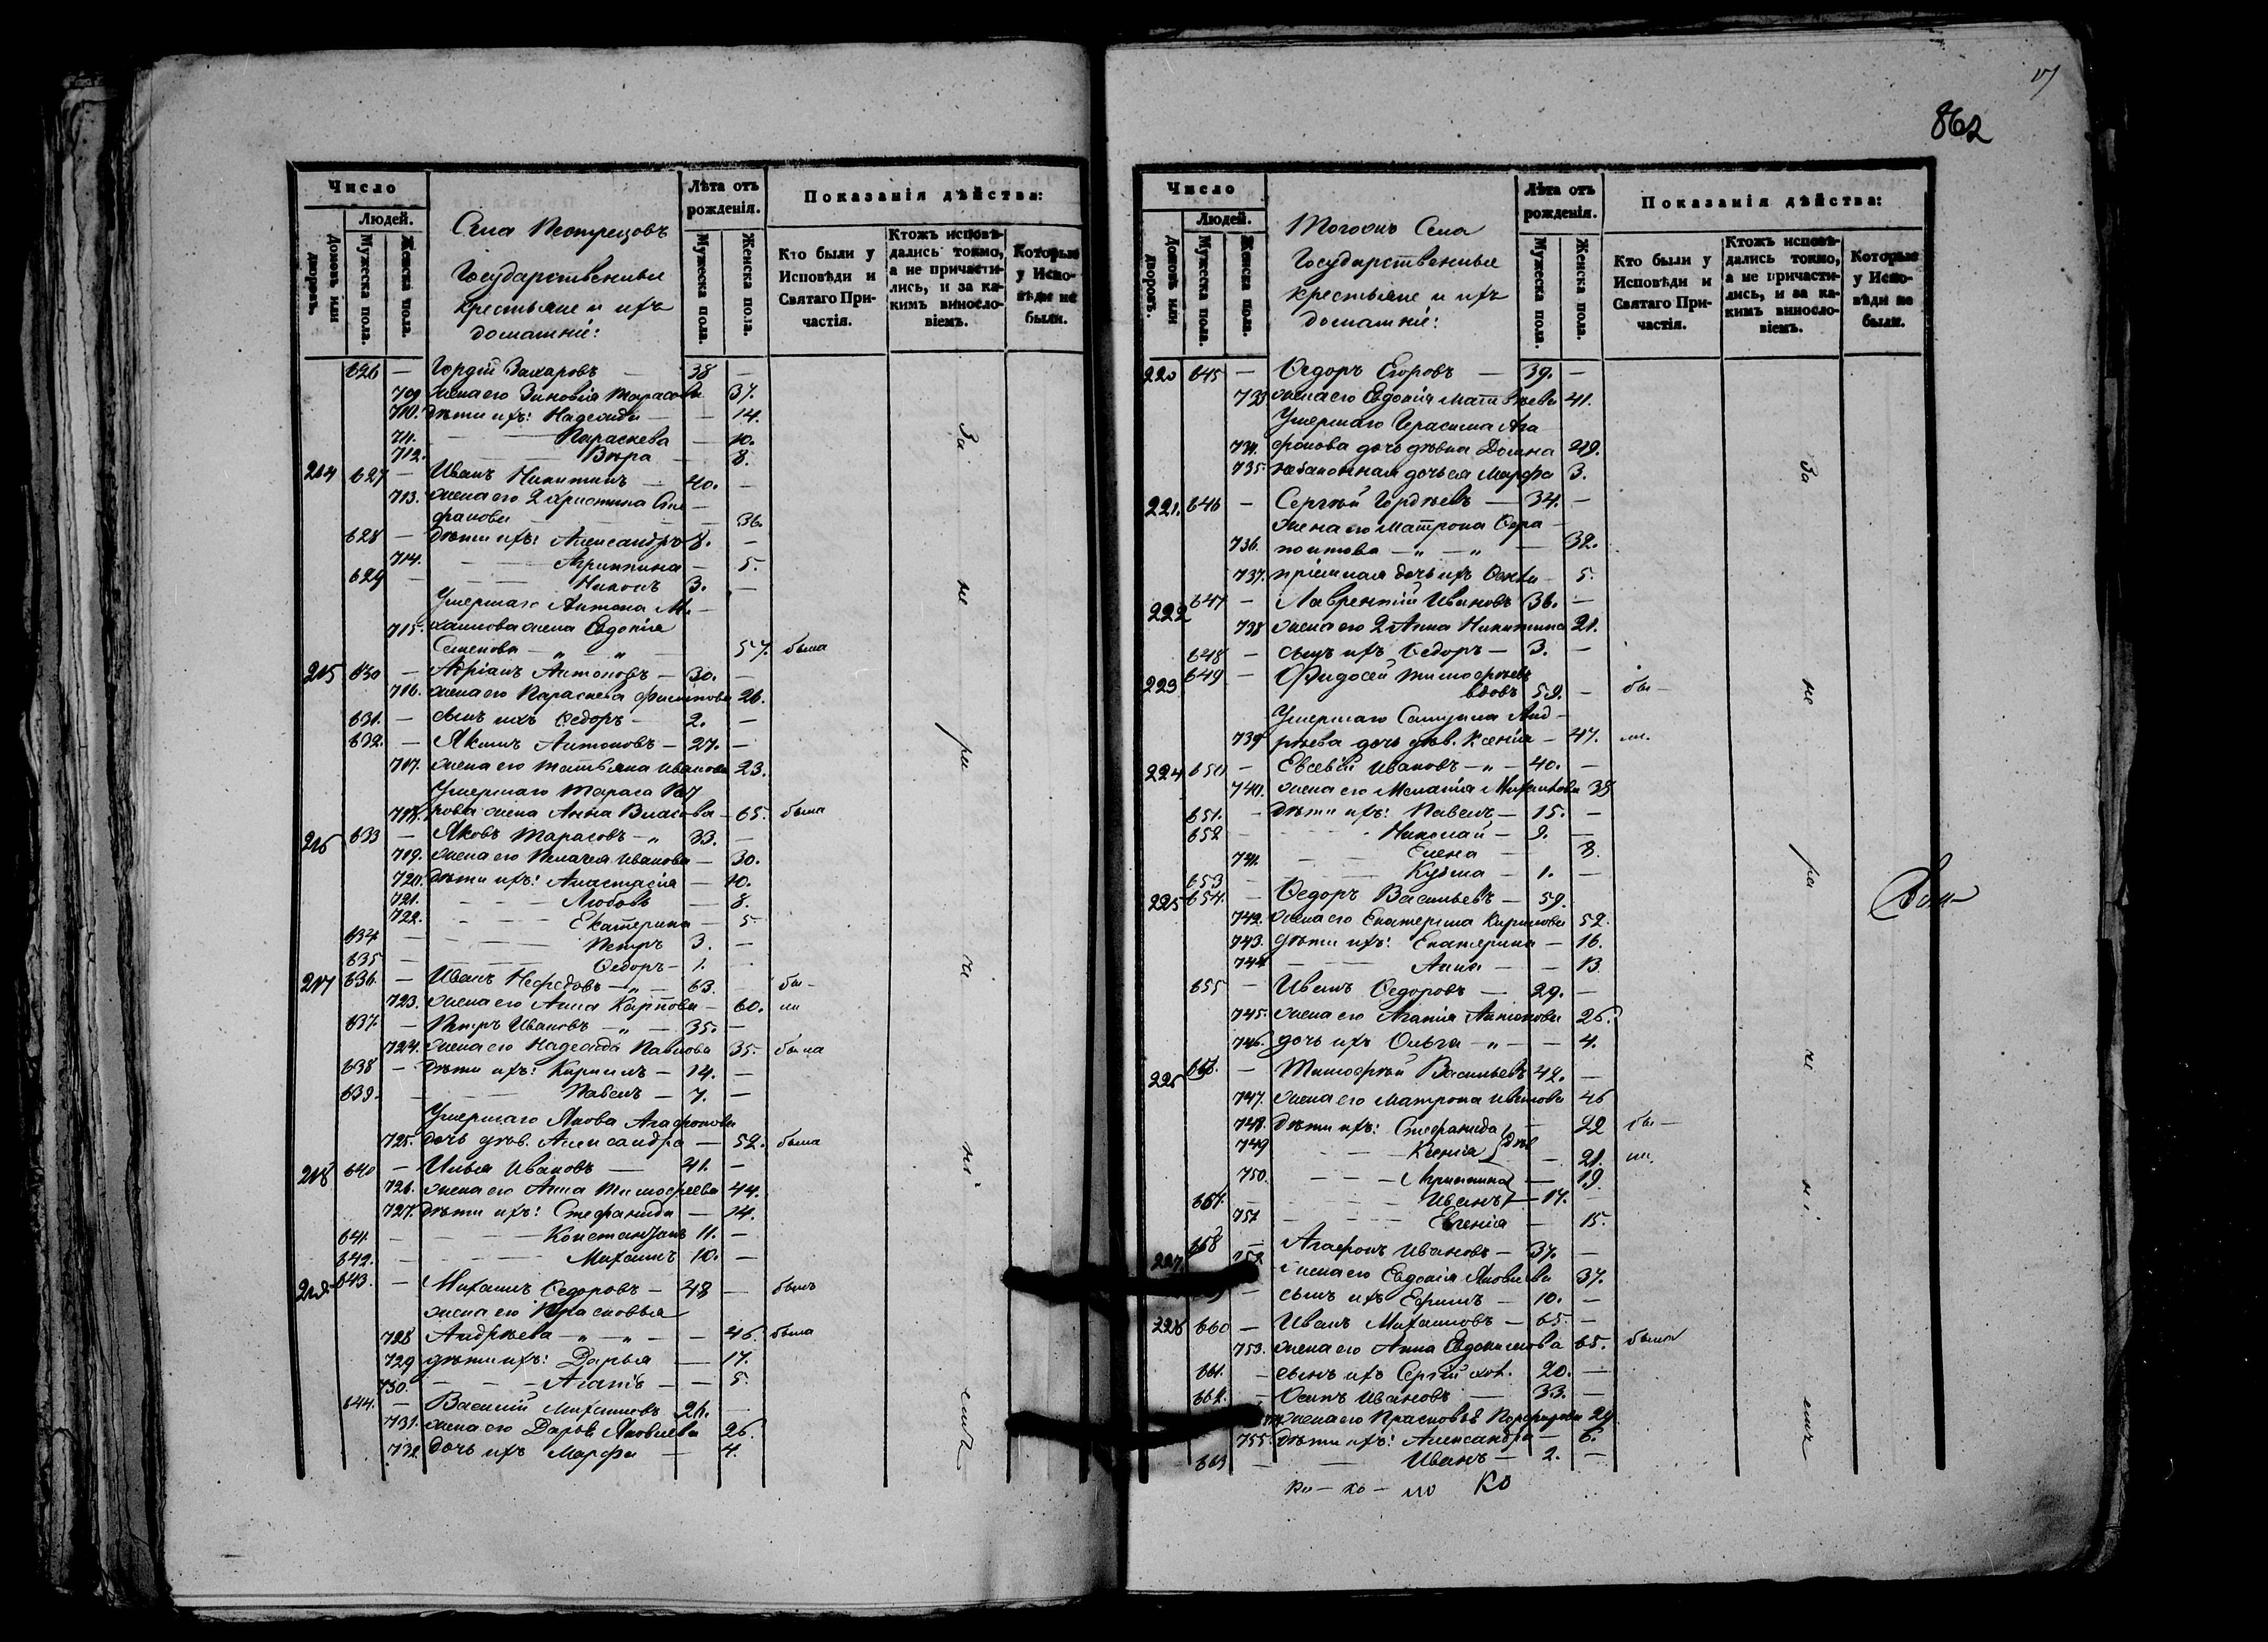 862
Число
Людей.
Домовъ или дворовъ.
Мужеска пола.
Женска пола.
Села
Государственные
крестьяне и ихъ
домашніе:
Лѣта отъ рожденія.
Мужеска пола.
Женска пола.
Показанія дѣйства:
Кто были у Исповѣди и Святаго Причастія.
Ктожъ исповѣдались токмо, а не причастились, и за какимъ винословіемъ.
Которые у Исповѣди не были.
626 — Гордій Захаровъ — 38 —
709 жена его Зиновія Тарасова 37.
710. дѣти ихъ: Надежда — — 14.
711. — Параскева — 10.
712. — Вѣра — 8.
214 627 — Иванъ Никитинъ — 40. —
713. жена его 2 Христина Сте-
фанова — 36.
628 — дѣти ихъ: Александръ 8. —
714. — Агриппина — 5.
629 — Никонъ 3. —
Умершаго Антона Ми-
715. хаилова жена Евдокія
Семенова — „ — „ — 57. была
215 630 — Адріанъ Антоновъ — 30. —
716. жена его Параскева Филипова 26.
631. — сынъ ихъ Ѳедоръ — 2. —
632. — Якимъ Антоновъ — 27. —
717. жена его Татьяна Иванова 23.
Умершаго Тараса Пет-
718. рова жена Анна Власова — 65. была
216 633 — Яковъ Тарасовъ — „ 33. —
719. жена его Пелагея Иванова — 30.
720. дѣти ихъ: Анастасія — 10.
721. — Любовь — 8.
722. — Екатерина — 5
634 — Петръ 3. —
635 — Ѳедоръ — 1. —
217 636. — Иванъ Нефедовъ — „ — 63. бы-
723. жена его Анна Карпова — 60. ли
637. — Петръ Ивановъ — „ — 35. —
724. жена его Надежда Павлова 35. была
638 — дѣти ихъ: Кириллъ — 14. —
639. — Павелъ — 7. —
Умершаго Якова Агафонова
725. дочь дѣв. Александра — 52. была
218 640 — Илья Ивановъ — 41. —
726. жена его Анна Тимофеева 44.
727. дѣти ихъ: Стефанида — 14.
641. — Константинъ 11. —
642. — Михаилъ 10. —
219. 643. — Михаилъ Ѳедоровъ — 48 — былъ
жена его Прасковья
728 Андрѣева — „ — „ — 46. была
729 дѣти ихъ: Дарья — 17.
730. — Агапія — — 5.
644. — Василій Михаиловъ 26. —
731. жена его Дарья Яковлева 26.
732. дочь ихъ Марфа — 4.
За не ра че ні емъ
Число
Людей.
Домовъ или дворовъ.
Мужеска пола.
Женска пола.
Тогожъ Села
Государственные
крестьяне и ихъ
домашніе:
Лѣта отъ рожденія.
Мужеска пола.
Женска пола.
Показанія дѣйства:
Кто были у Исповѣди и Святаго Причастія.
Ктожъ исповѣдались токмо, а не причастились, и за какимъ винословіемъ.
Которые у Исповѣди не были.
220 645 — Ѳедоръ Егоровъ — 39. —
733 жена его Евдокія Матвѣева 41.
Умершаго Герасима Ага-
734. фонова дочь дѣвка Домна 49.
735. незаконная дочь ея Марфа 3.
221. 646 — Сергѣй Гордѣевъ — 34. —
жена его Матрона Сера-
736. піонова — „ — „ — 32.
737. пріемная дочь ихъ Ѳекла 5.
222 647 — Лаврентій Ивановъ 36. —
738 жена его 2 Анна Никитина 21.
648 — сынъ ихъ Ѳедоръ — 3. —
223 649 — Ѳидосей Тимофѣевъ
вдовъ 59. — бы-
Умершаго Самуила Анд-
739 рѣева дочь дѣв. Ксенія — 47. ли.
224 650 — Евсевій Ивановъ — „ — 40. —
740. жена его Меланія Михаилова 38
651. — дѣти ихъ: Павелъ — 15. —
652 — Николай — 9. —
741. — Елена — 8.
653 — Кузьма — 1. —
225 654. — Ѳедоръ Васильевъ — 59.
742. жена его Екатерина Кирилова 52.
743. дѣти ихъ: Екатерина — 16.
744 — Анна — — 13
655 — Иванъ Ѳедоровъ — 29. —
745. жена его Агапія Антонова 26.
746. дочь ихъ Ольга — „ — — 4.
226 656. — Тимофѣй Васильевъ 42. —
747. жена его Матрона Иванова 46
748. дѣти ихъ: Стефанида — 22 бы-
749 — Ксенія дѣв — 21. ли.
750. — Агриппина — 19
657. — Иванъ — 17. —
751 — Евгенія — 15.
227. 658 — Агафонъ Ивановъ — 37. —
752 жена его Евдокія Яковлева 37.
— сынъ ихъ Ефимъ — 10. —
228 660 — Иванъ Михаиловъ — 65. —
753. жена его Анна Евдокимова 65. были
661. — сынъ ихъ Сергій хол. 20. —
662. — Осипъ Ивановъ — 33. —
жена его Прасковья Порфирова 29.
755. дѣти ихъ: Александра — 6.
663 — Иванъ — 2. —
За не ра че ні емъ